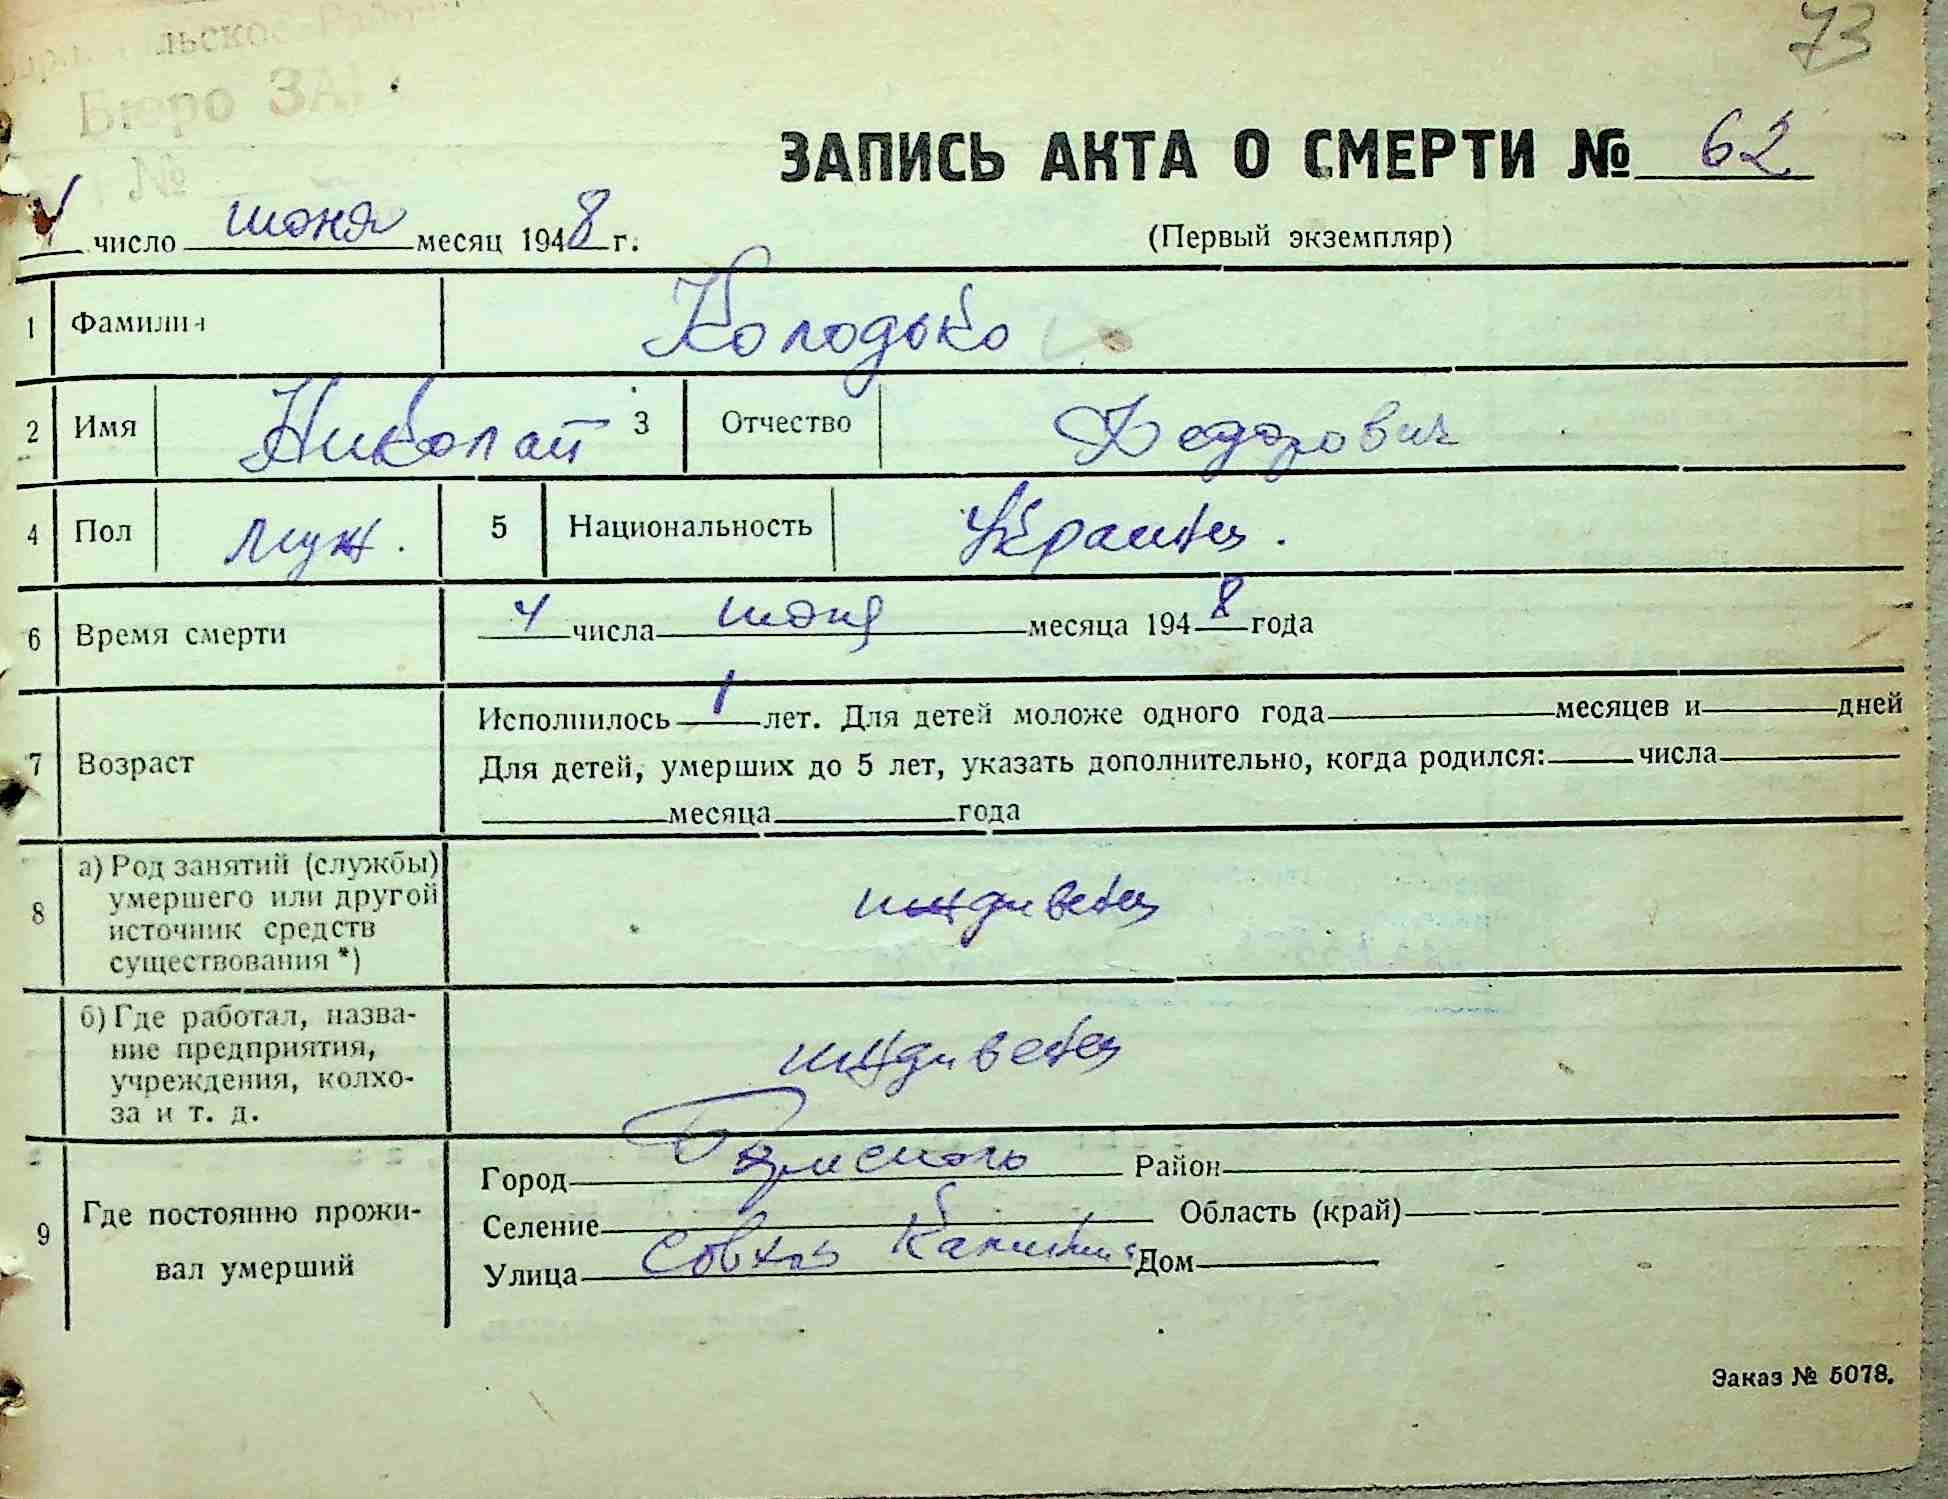 73
льское
Бюро ЗА
№
ЗАПИСЬ АКТА О СМЕРТИ № 62
4 число июня месяц 1948 г.
(Первый экземпляр)
1 Фамилия Колодько
2 Имя Николай 3 Отчество Федорович
4 Пол муж. 5 Национальность Украинец.
6 Время смерти 4 числа июня месяца 1948 года
7 Возраст
Исполнилось 1 лет. Для детей моложе одного года месяцев и дней
Для детей, умерших до 5 лет, указать дополнительно, когда родился: числа
месяца года
8 а) Род занятий (службы)
умершего или другой
источник средств
существования *)
иждивенец
б) Где работал, назва-
ние предприятия,
учреждения, колхо-
за и т. д.
иждивенец
9 Где постоянно прожи-
вал умерший
Город Борисполь Район
Селение Область (край)
Улица совхоз Дом
Заказ № 5078.